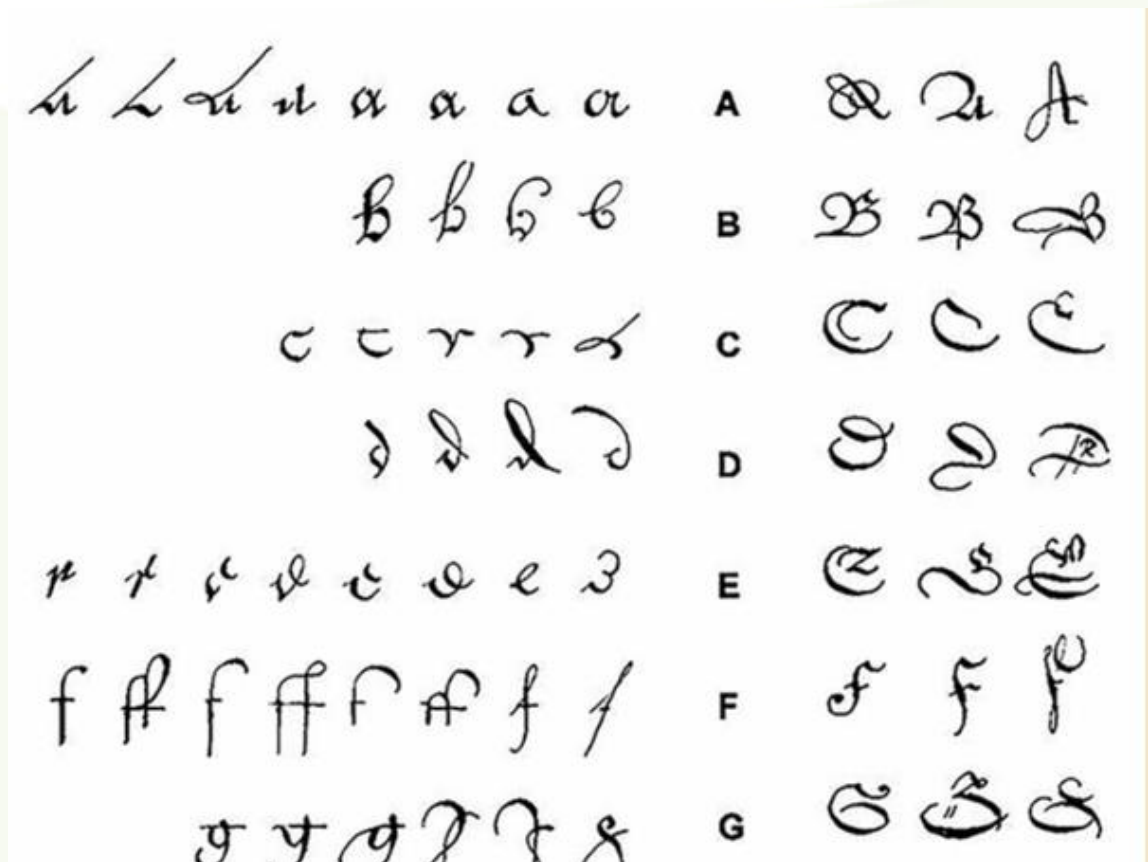 a a a a a a a a A A A A
b b b b B B B B
c c c c c C C C C
d d d d D D D D
e e e e e e e e E E E E
f ff f ff f ff f f F F F F
g g g g g g G G G G